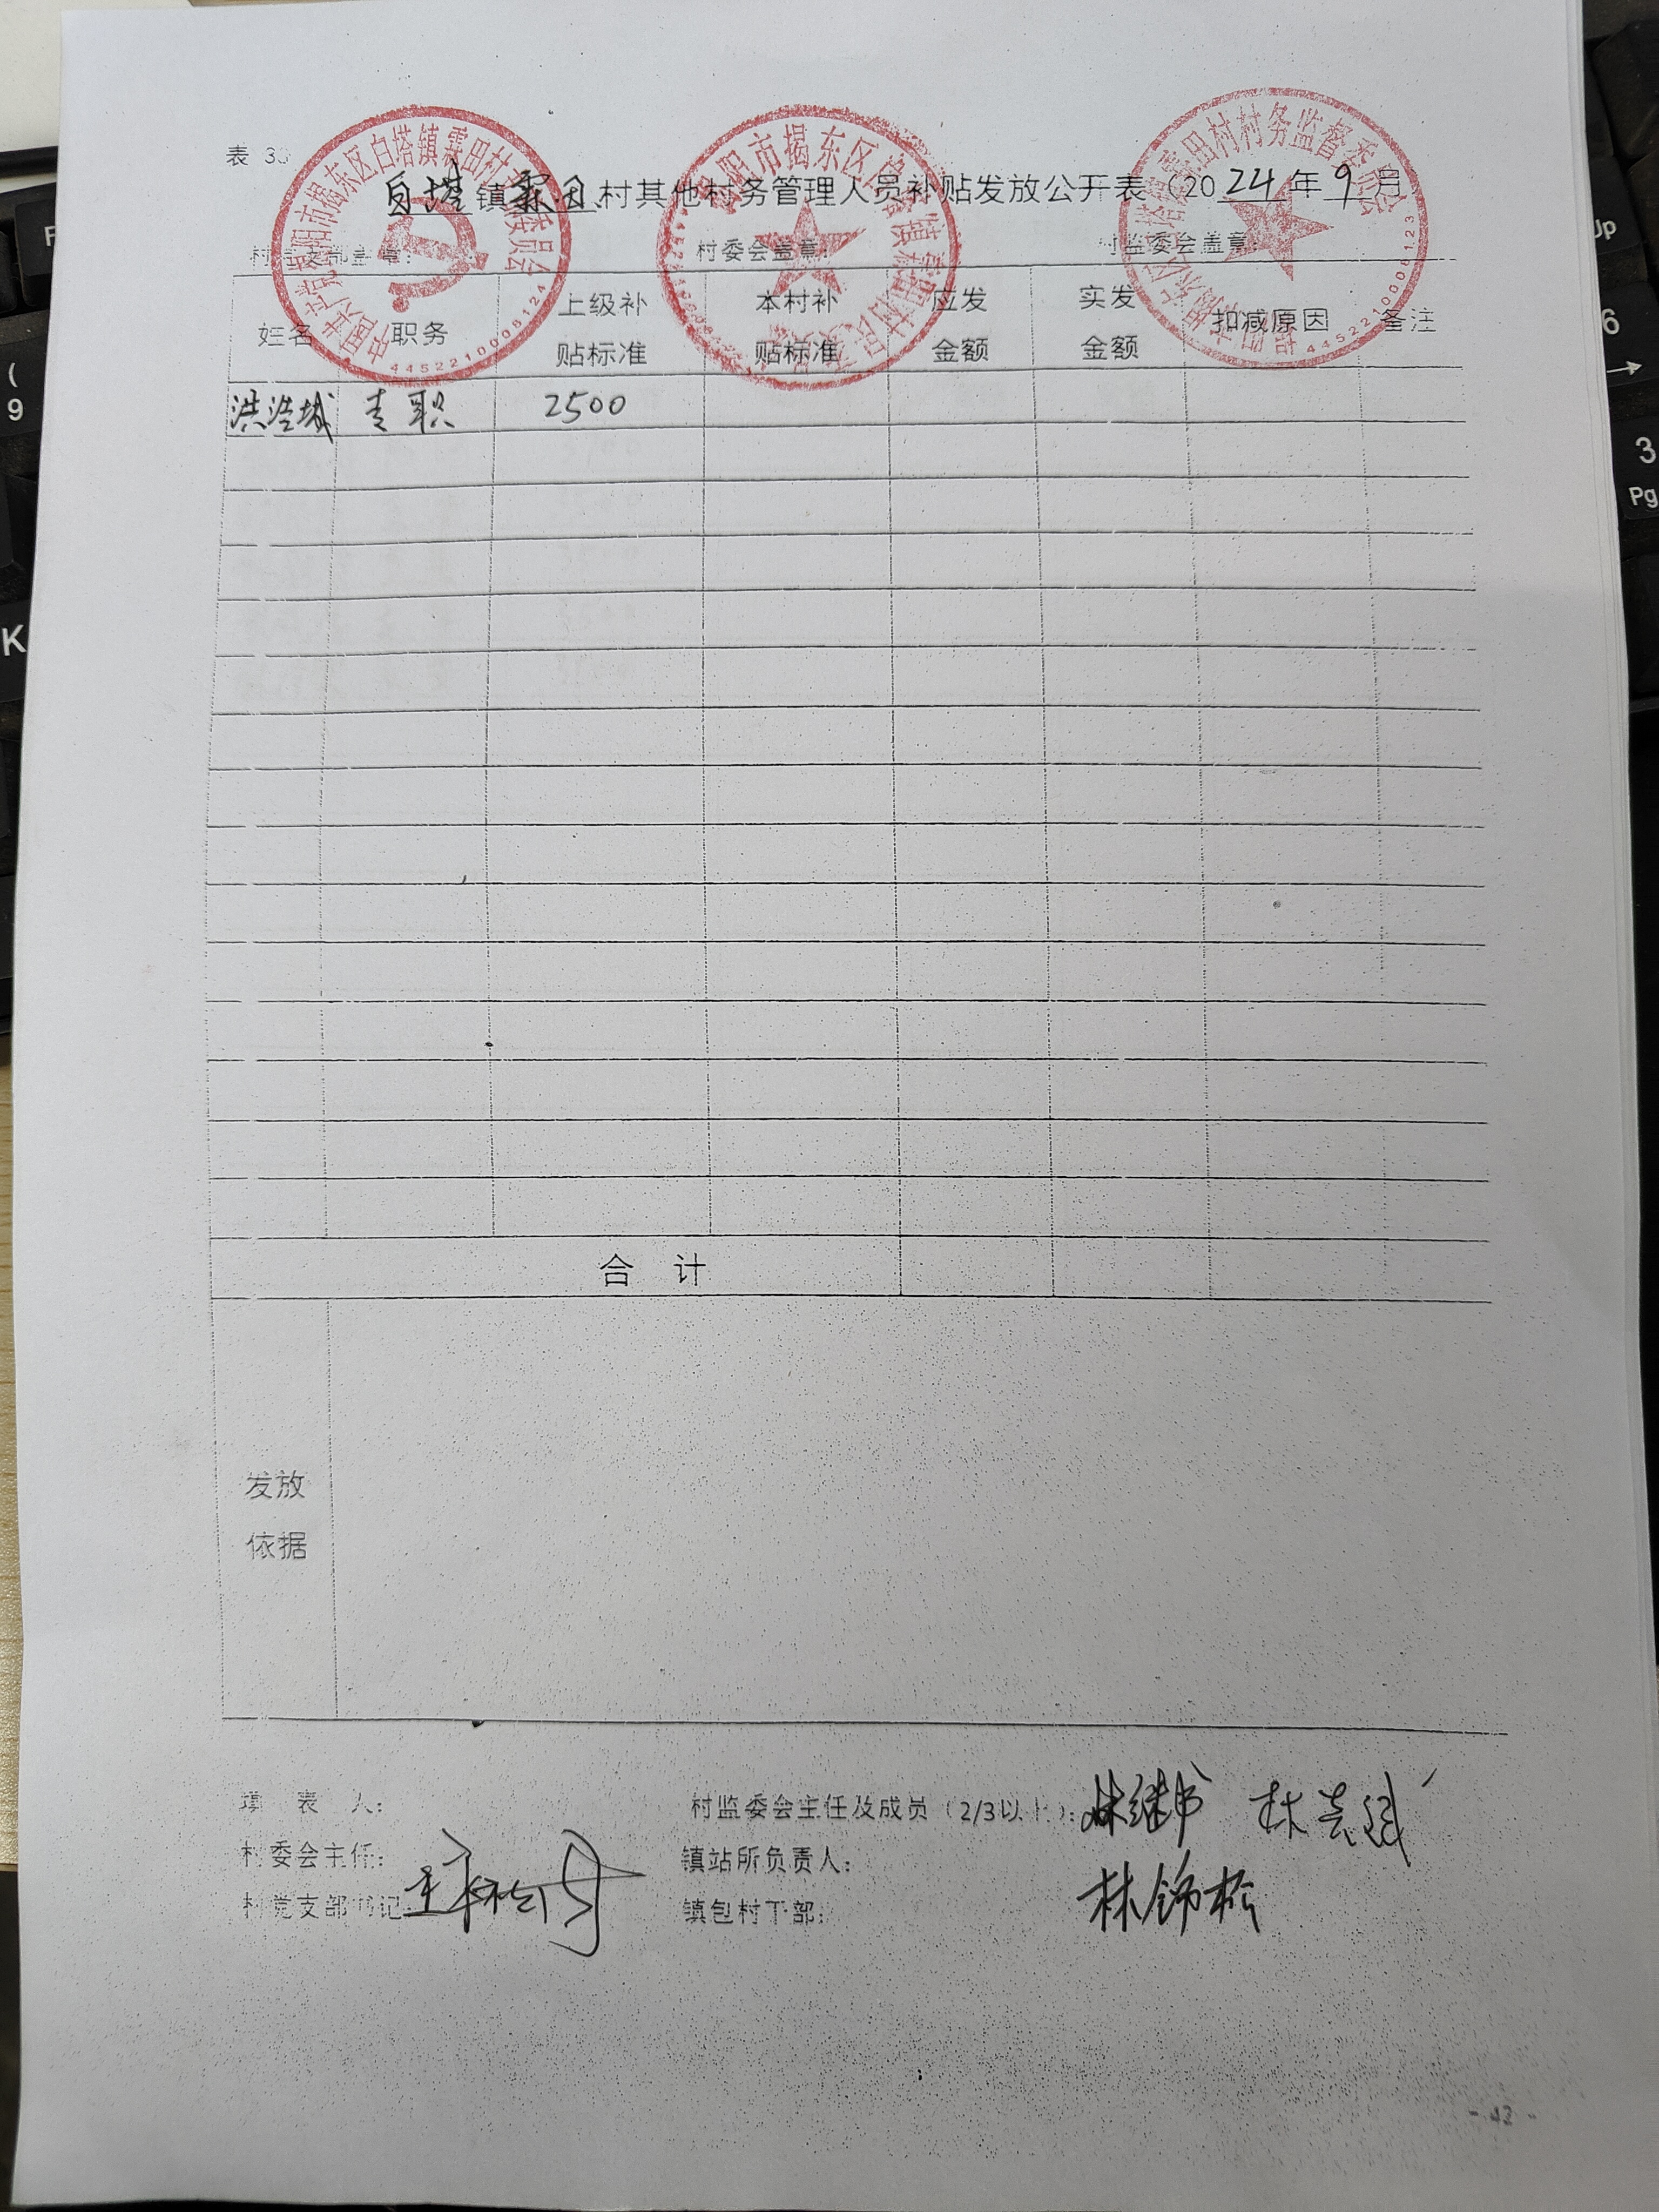 表 3
白塔镇霖田村其他村务管理人员补贴发放公开表（2024年9月
村党支部盖章： 村委会盖章： 村监委会盖章：
姓名 职务 上级补贴标准 本村补贴标准 应发金额 实发金额 扣减原因 备注
洪浩城 专职 2500
合 计
发放
依据
填 表 人： 村监委会主任及成员（2/3以上）：林继书
村委会主任： 镇站所负责人：
村党支部书记： 镇包村干部： 林锦松
- 42 -
中国共产党揭阳市揭东区白塔镇霖田村 委员会
4452210008124
揭阳市揭东区白塔镇霖田村民委员会
揭阳市揭东区白塔镇霖田村村务监督委员会
4452210008123